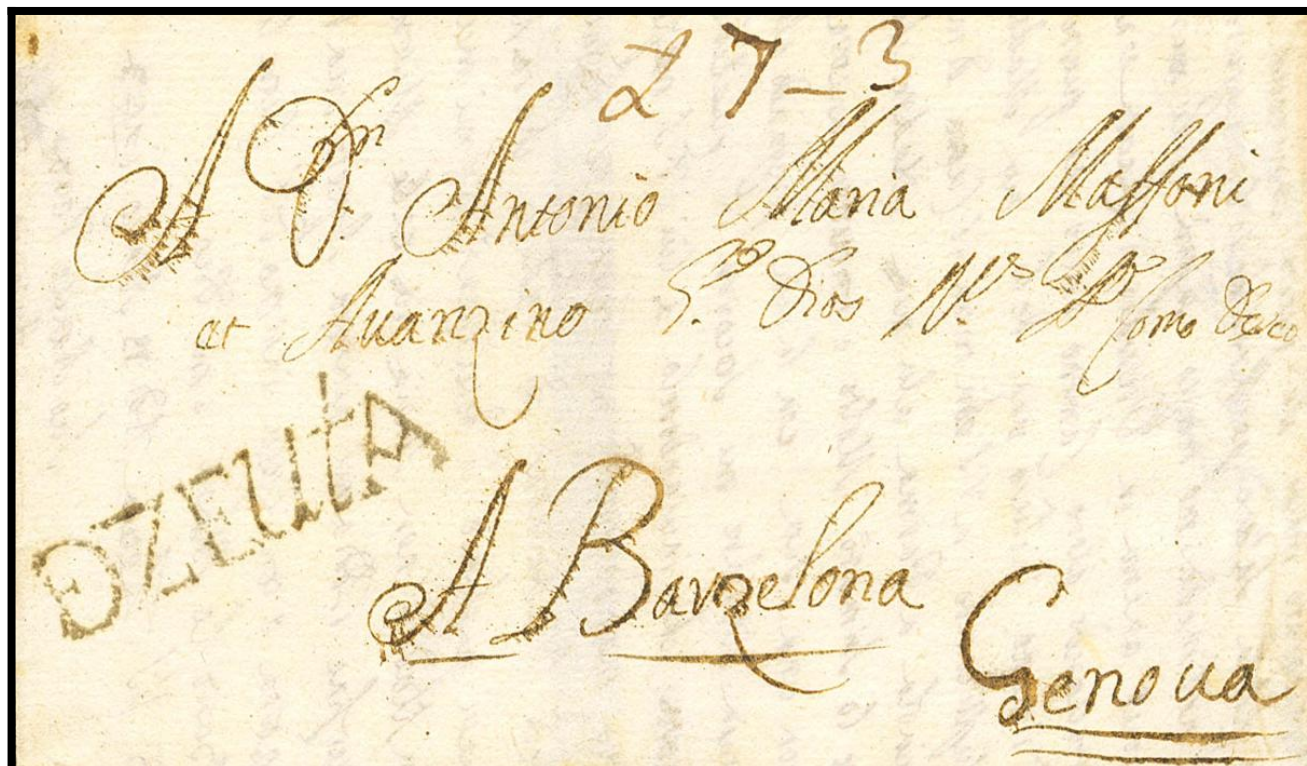 L 7-3
A Dn. Antonio Maria Maffoni
at Auanzino Gde. Dios Ns. Como Deseo
DE ZEUTA
A Barzelona
Genova